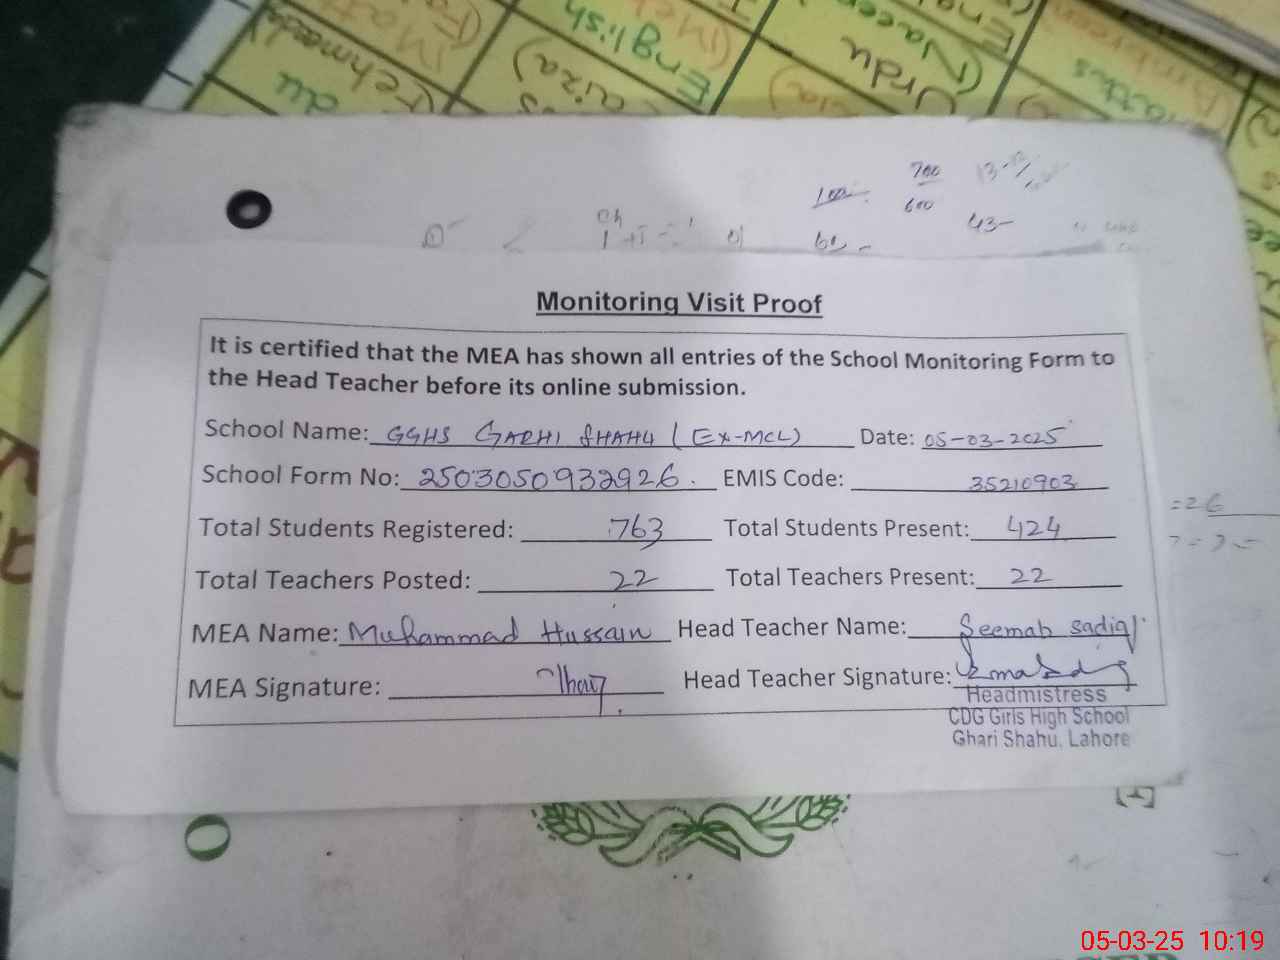 (Fehmeeda)
du
(Laiza)
English
Urdu
(Naeem
Maths
100
700
600
13-
43-
60 -
Monitoring Visit Proof
It is certified that the MEA has shown all entries of the School Monitoring Form to
the Head Teacher before its online submission.
School Name: GGHS GARHI SHAHU (EX-MCL) Date: 05-03-2025
School Form No: 2503050932926. EMIS Code: 35210903
Total Students Registered: 763 Total Students Present: 424
Total Teachers Posted: 22 Total Teachers Present: 22
MEA Name: Muhammad Hussain Head Teacher Name: Seemab sadiq
MEA Signature: Head Teacher Signature:
Headmistress
CDG Girls High School
Ghari Shahu, Lahore
=26
05-03-25 10:19